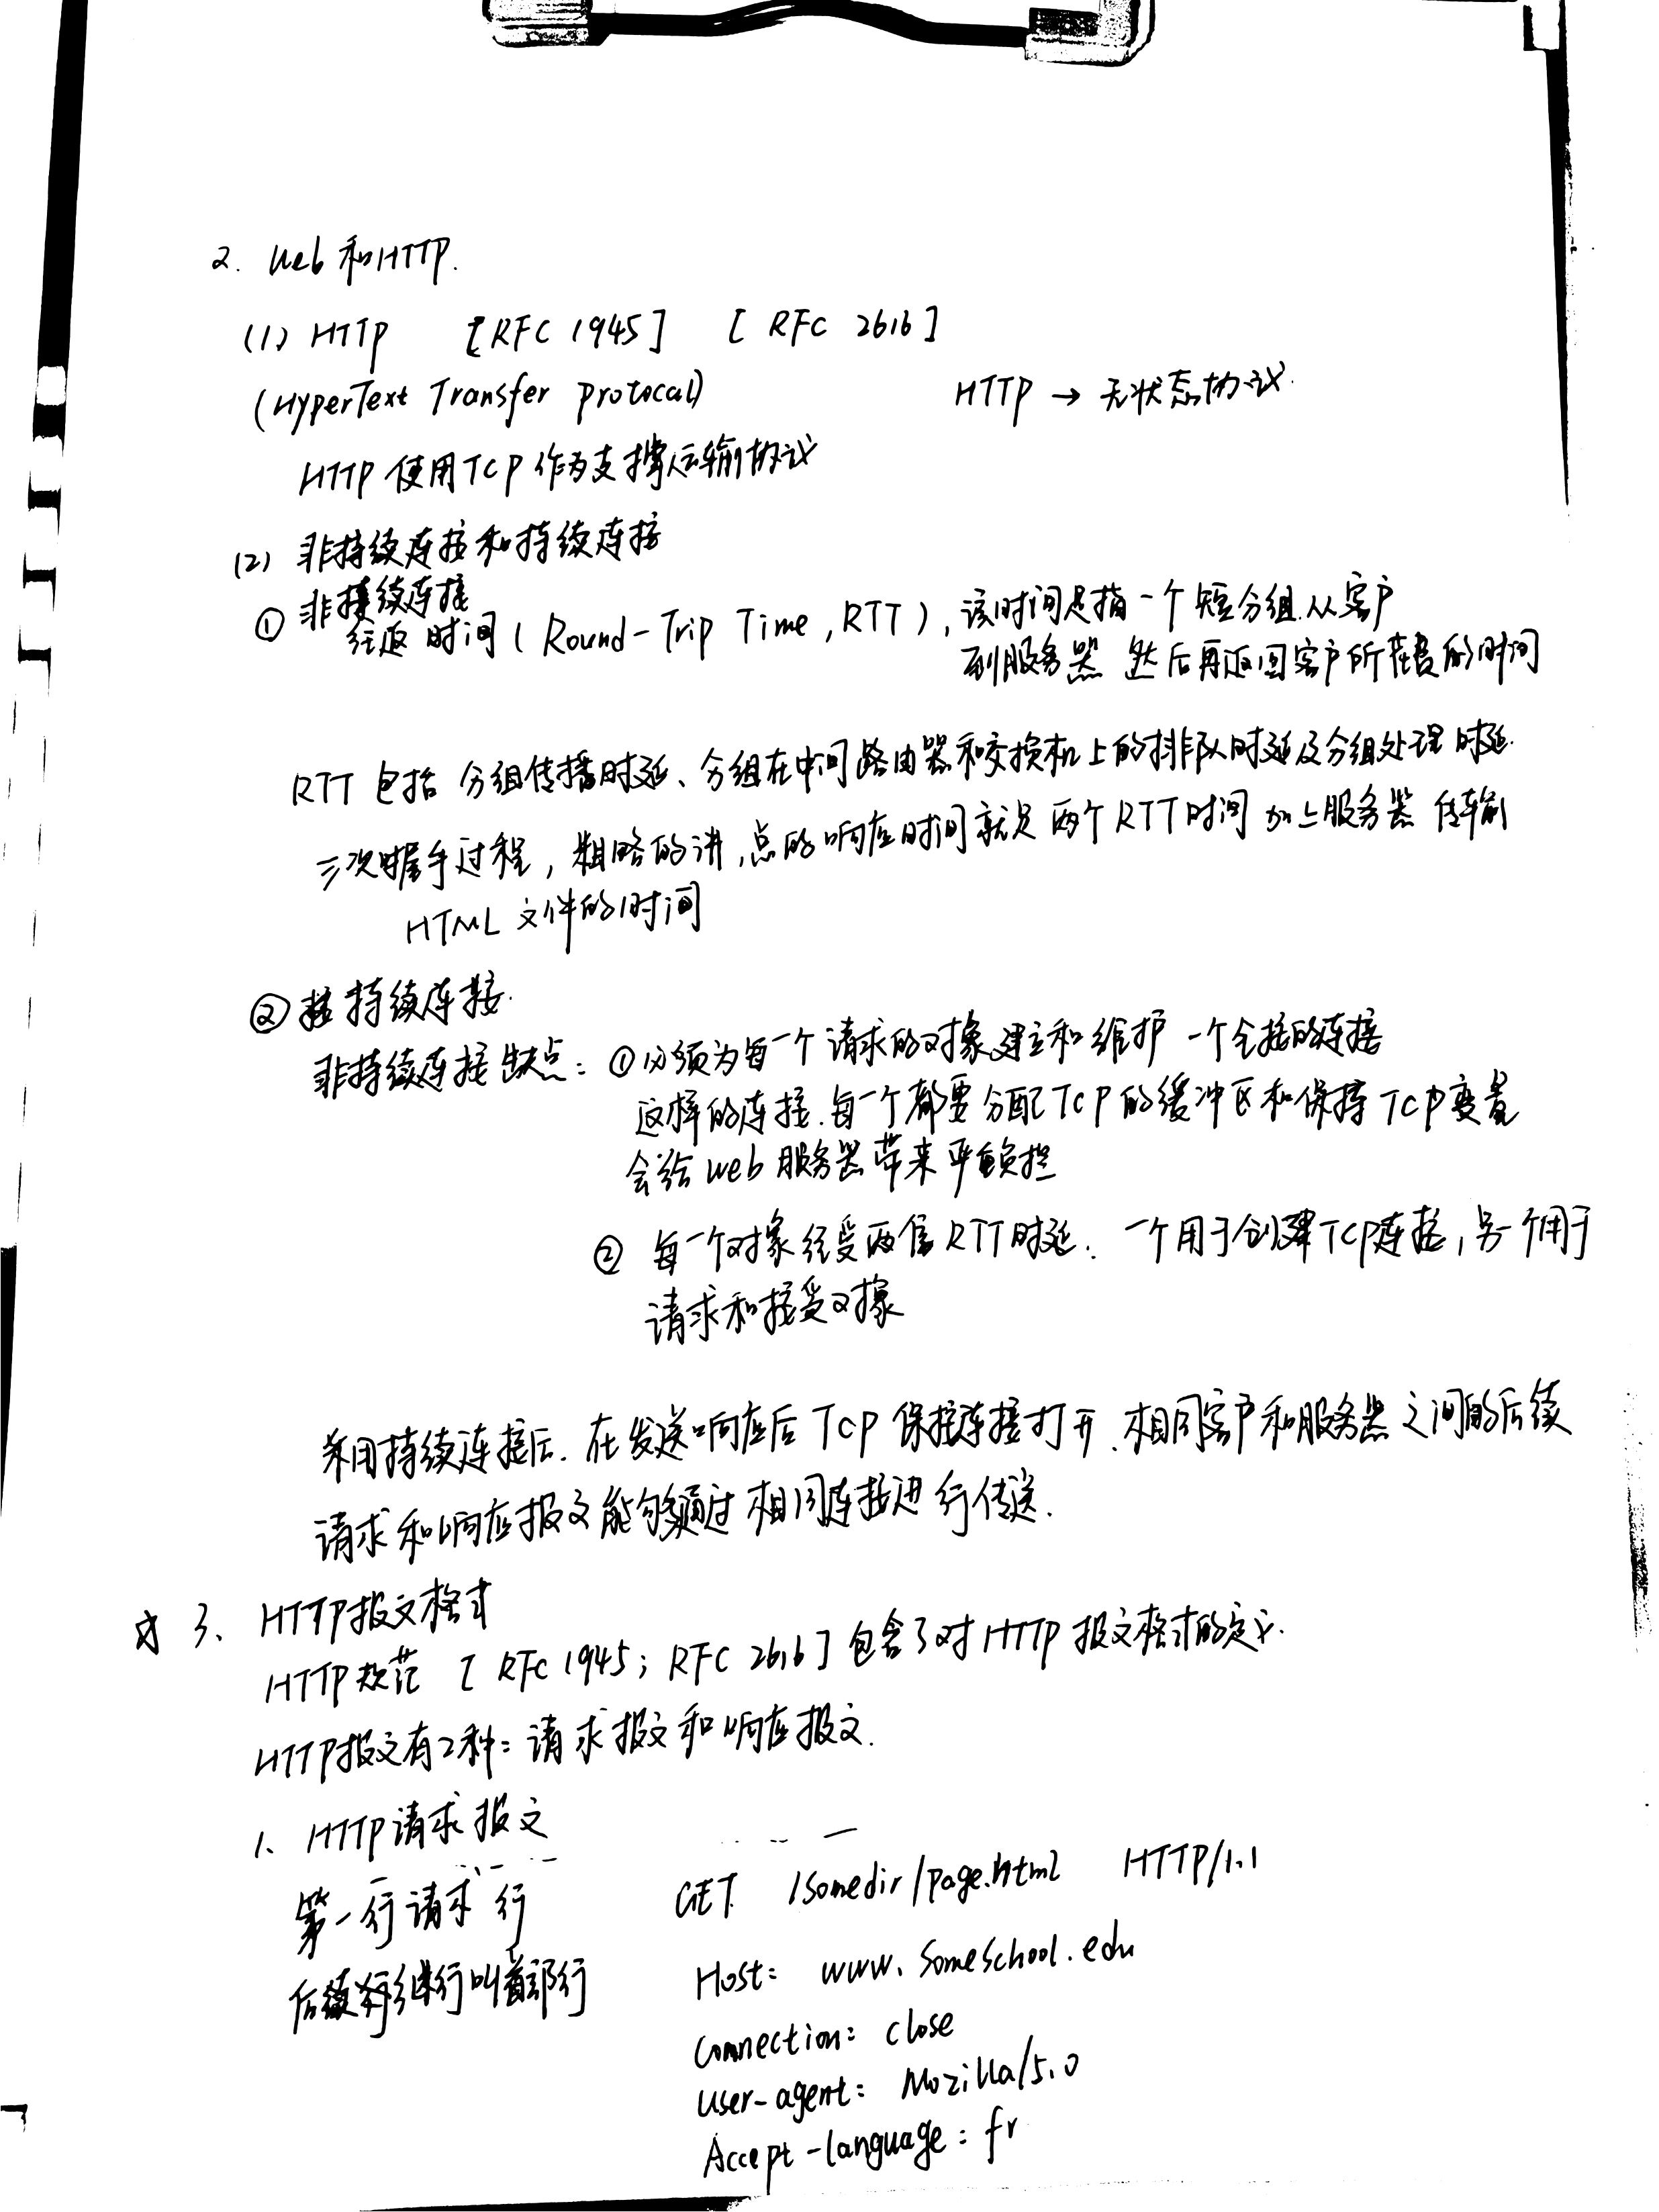 2. Web 和HTTP.
(1) HTTP [RFC 1945] [RFC 2616]
(HyperText Transfer protocal) HTTP → 无状态协议.
HTTP 使用TCP 作为支撑运输协议
(2) 非持续连接和持续连接
① 非持续连接
往返时间 (Round-Trip Time, RTT), 该时间是指一个短分组从客户
到服务器 然后再返回客户所花费的时间
RTT 包括 分组传播时延、分组在中间路由器和交换机上的排队时延及分组处理时延.
三次握手过程, 粗略的讲, 总的响应时间就是 两个RTT时间 加上服务器 传输
HTML 文件的时间
② 持续连接.
非持续连接缺点: ①必须为每一个请求的对象建立和维护 一个全新的连接
这样的连接.每一个都要分配TCP的缓冲区和保持TCP变量
会给Web服务器带来严重负担
② 每一个对象经受两倍RTT时延. 一个用于创建TCP连接, 另一个用于
请求和接受对象
采用持续连接后. 在发送响应后 TCP 保持连接打开. 相同客户和服务器之间的后续
请求和响应报文能够通过相同连接进行传送.
☆ 3、 HTTP报文格式
HTTP规范 [RFC 1945; RFC 2616] 包含了对HTTP报文格式的定义.
HTTP报文有2种: 请求报文和响应报文.
1、 HTTP请求报文
第一行请求行 GET /somedir/page.html HTTP/1.1
Host: www.someschool.edu
后续行叫首部行
Connection: close
User-agent: Mozilla/5.0
Accept-language: fr